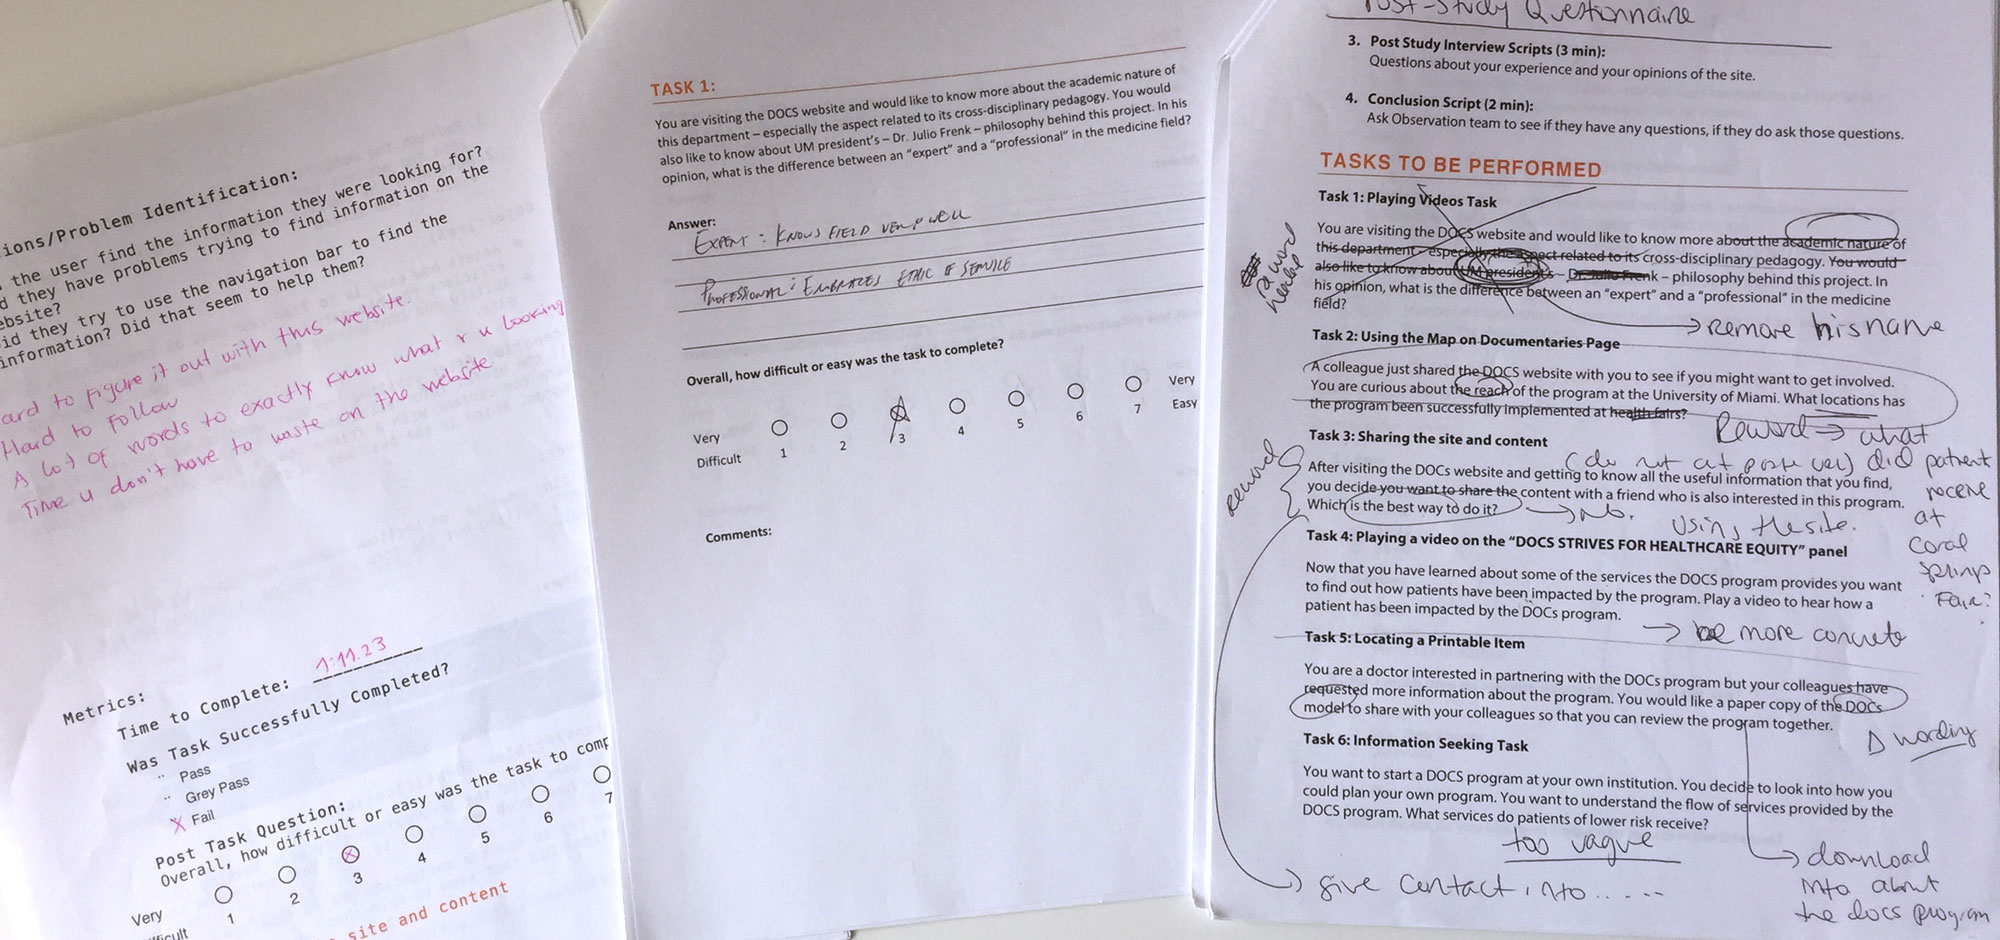 ions/Problem Identification:
the user find the information they were looking for?
d they have problems trying to find information on the
ebsite?
id they try to use the navigation bar to find the
information? Did that seem to help them?
ard to figure it out with this website.
Hard to Follow
A lot of words to exactly know what r u looking
Time u don't have to waste on the website
Metrics:
Time to Complete: 1:11.23
Was Task Successfully Completed?
Pass
Grey Pass
X Fail
Post Task Question:
Overall, how difficult or easy was the task to comp
Very
1 2 3 4 5 6 7
fficult
site and content
TASK 1:
You are visiting the DOCS website and would like to know more about the academic nature of
this department – especially the aspect related to its cross-disciplinary pedagogy. You would
also like to know about UM president's – Dr. Julio Frenk – philosophy behind this project. In his
opinion, what is the difference between an "expert" and a "professional" in the medicine field?
Answer:
EXPERT: KNOWS FIELD VERY WELL
PROFESSIONAL: EMBRACES ETHIC OF SERVICE
Overall, how difficult or easy was the task to complete?
Very Difficult 1 2 3 4 5 6 7 Very Easy
Comments:
Post-Study Questionnaire
3. Post Study Interview Scripts (3 min):
Questions about your experience and your opinions of the site.
4. Conclusion Script (2 min):
Ask Observation team to see if they have any questions, if they do ask those questions.
TASKS TO BE PERFORMED
Task 1: Playing Videos Task
You are visiting the DOCS website and would like to know more about the academic nature of
this department – especially the aspect related to its cross-disciplinary pedagogy. You would
also like to know about UM president's – Dr. Julio Frenk – philosophy behind this project. In
his opinion, what is the difference between an "expert" and a "professional" in the medicine
field?
remove his name
Task 2: Using the Map on Documentaries Page
A colleague just shared the DOCS website with you to see if you might want to get involved.
You are curious about the reach of the program at the University of Miami. What locations has
the program been successfully implemented at health fairs?
Reword → what
did patient
receive
at
coral
springs
Fair?
Task 3: Sharing the site and content
Reword
After visiting the DOCs website and getting to know all the useful information that you find,
you decide you want to share the content with a friend who is also interested in this program.
Which is the best way to do it?
→ No.
using the site.
Task 4: Playing a video on the "DOCS STRIVES FOR HEALTHCARE EQUITY" panel
Now that you have learned about some of the services the DOCS program provides you want
to find out how patients have been impacted by the program. Play a video to hear how a
patient has been impacted by the DOCs program.
→ be more concrete
Task 5: Locating a Printable Item
You are a doctor interested in partnering with the DOCs program but your colleagues have
requested more information about the program. You would like a paper copy of the DOCs
model to share with your colleagues so that you can review the program together.
Δ wording
Task 6: Information Seeking Task
You want to start a DOCS program at your own institution. You decide to look into how you
could plan your own program. You want to understand the flow of services provided by the
DOCS program. What services do patients of lower risk receive?
too vague
→ download
info about
the docs program
→ give contact info.....